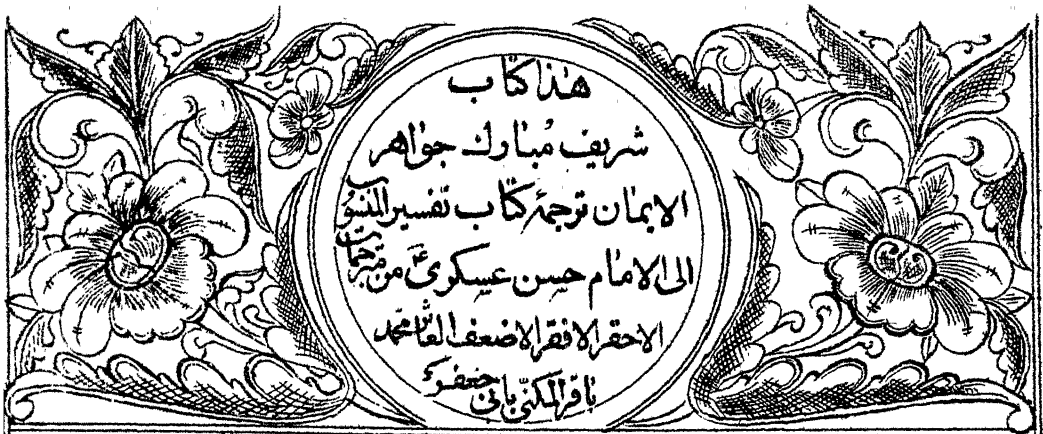 هذا كتاب
شريف مبارك جواهر
الايمان ترجمۀ كتاب تفسير المنسوب
الى الامام حسن عسكرى ع من مترجمات
الاحقر الافقر الاضعف محمد
باقر المكنّى بابى جعفر